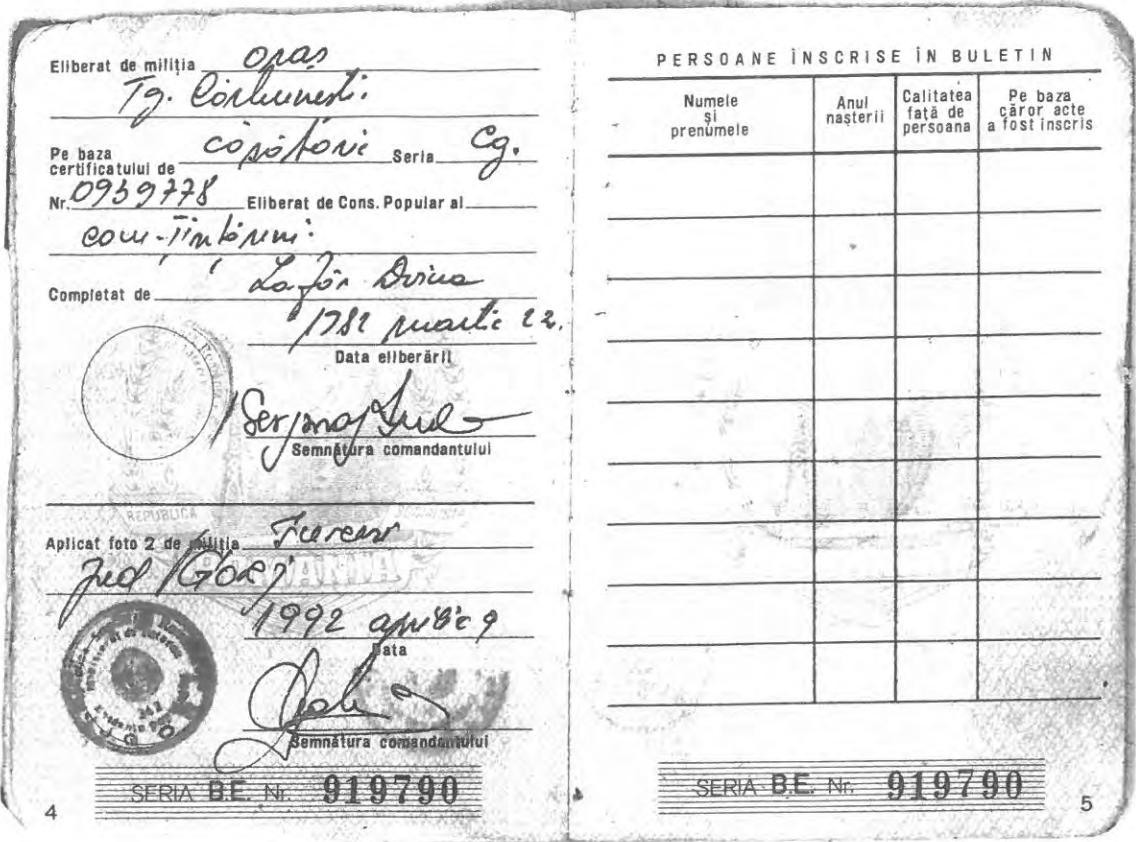 Eliberat de miliția oraș
Tg. Cărbunești.
Pe baza certificatului de căsătorie Seria Cg.
Nr. 0959778 Eliberat de Cons. Popular al
com. Țînțăreni.
Completat de Doina
martie 22.
Data eliberării
Semnătura comandantului
REPUBLICA
Aplicat foto 2 de miliția
Jud Gorj
ROMANIA
1992 aprilie 9
Data
Semnătura comandantului
SERIA B.E. Nr. 919790
4
PERSOANE ÎNSCRISE ÎN BULETIN
Numele și prenumele
Anul nașterii
Calitatea față de persoana
Pe baza căror acte a fost înscris
SERIA B.E. Nr. 919790
5